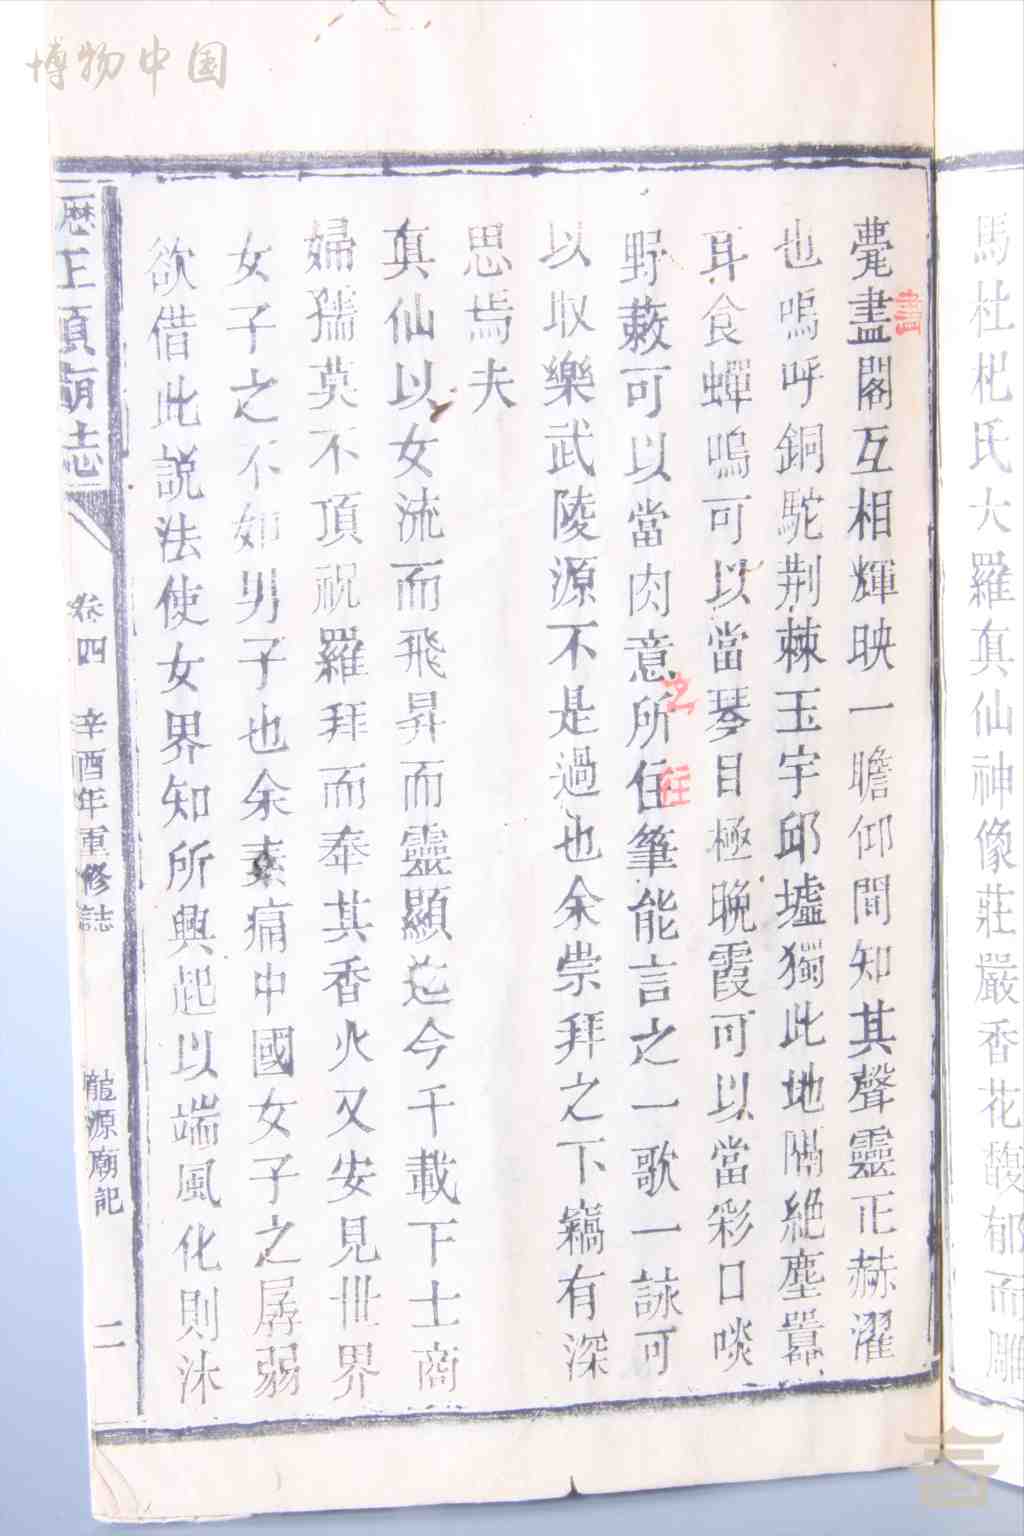 博物中国
馬杜杞氏大羅真仙神像莊嚴香花馥郁而雕
甍盡閣互相輝映一瞻仰間知其聲靈正赫濯
畫
也嗚呼銅駝荆棘玉宇邱墟獨此地隔絶塵囂
耳食蟬鳴可以當琴目極晚霞可以當彩口啖
野蔌可以當肉意所住筆能言之一歌一詠可
之往
以取樂武陵源不是過也余崇拜之下竊有深
思焉夫
真仙以女流而飛昇而靈顯迄今千載下士商
婦孺莫不頂祝羅拜而奉其香火又安見世界
女子之不如男子也余素痛中國女子之孱弱
欲借此説法使女界知所興起以端風化則沐
歷正頂廟志
卷四 辛酉年重修誌 龍源廟記 二